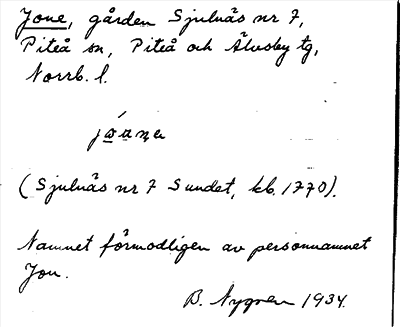 Jone, gården Sjulnäs nr 7,
Piteå sn, Piteå och Älvsby tg,
Norrb. l.
(Sjulnäs nr 7 Sundet, kb. 1770).
Namnet förmodligen av personnamnet
Jon.
B. Nygren 1934.